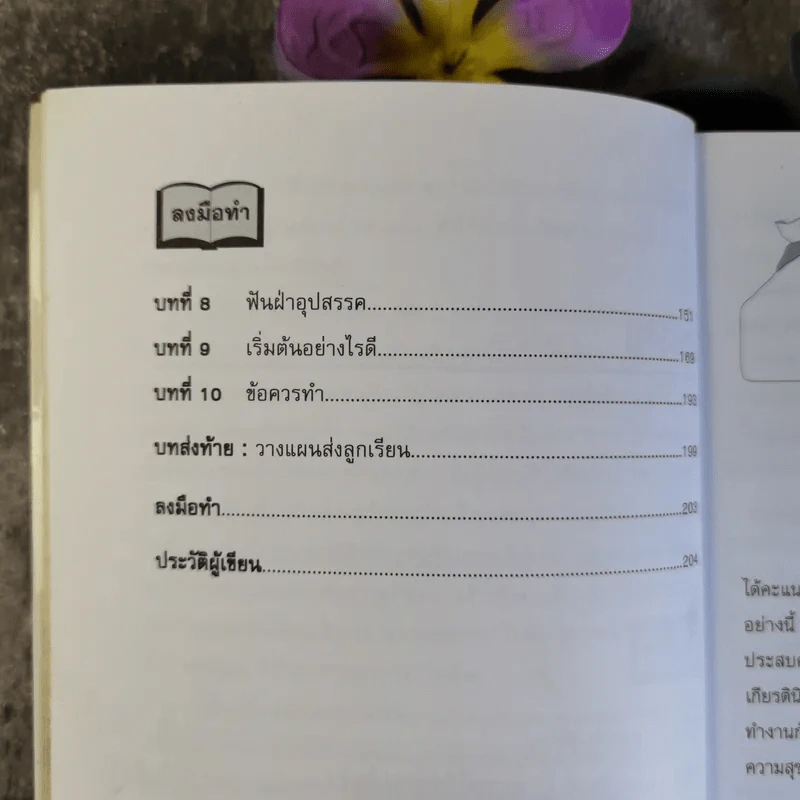 ลงมือทำ
บทที่ 8 ฟันฝ่าอุปสรรค........................151
บทที่ 9 เริ่มต้นอย่างไรดี........................169
บทที่ 10 ข้อควรทำ........................193
บทส่งท้าย : วางแผนส่งลูกเรียน........................199
ลงมือทำ........................203
ประวัติผู้เขียน........................204
ได้คะแน
อย่างนี้
ประสบค
เกียรตินิ
ทำงานกั
ความสุข